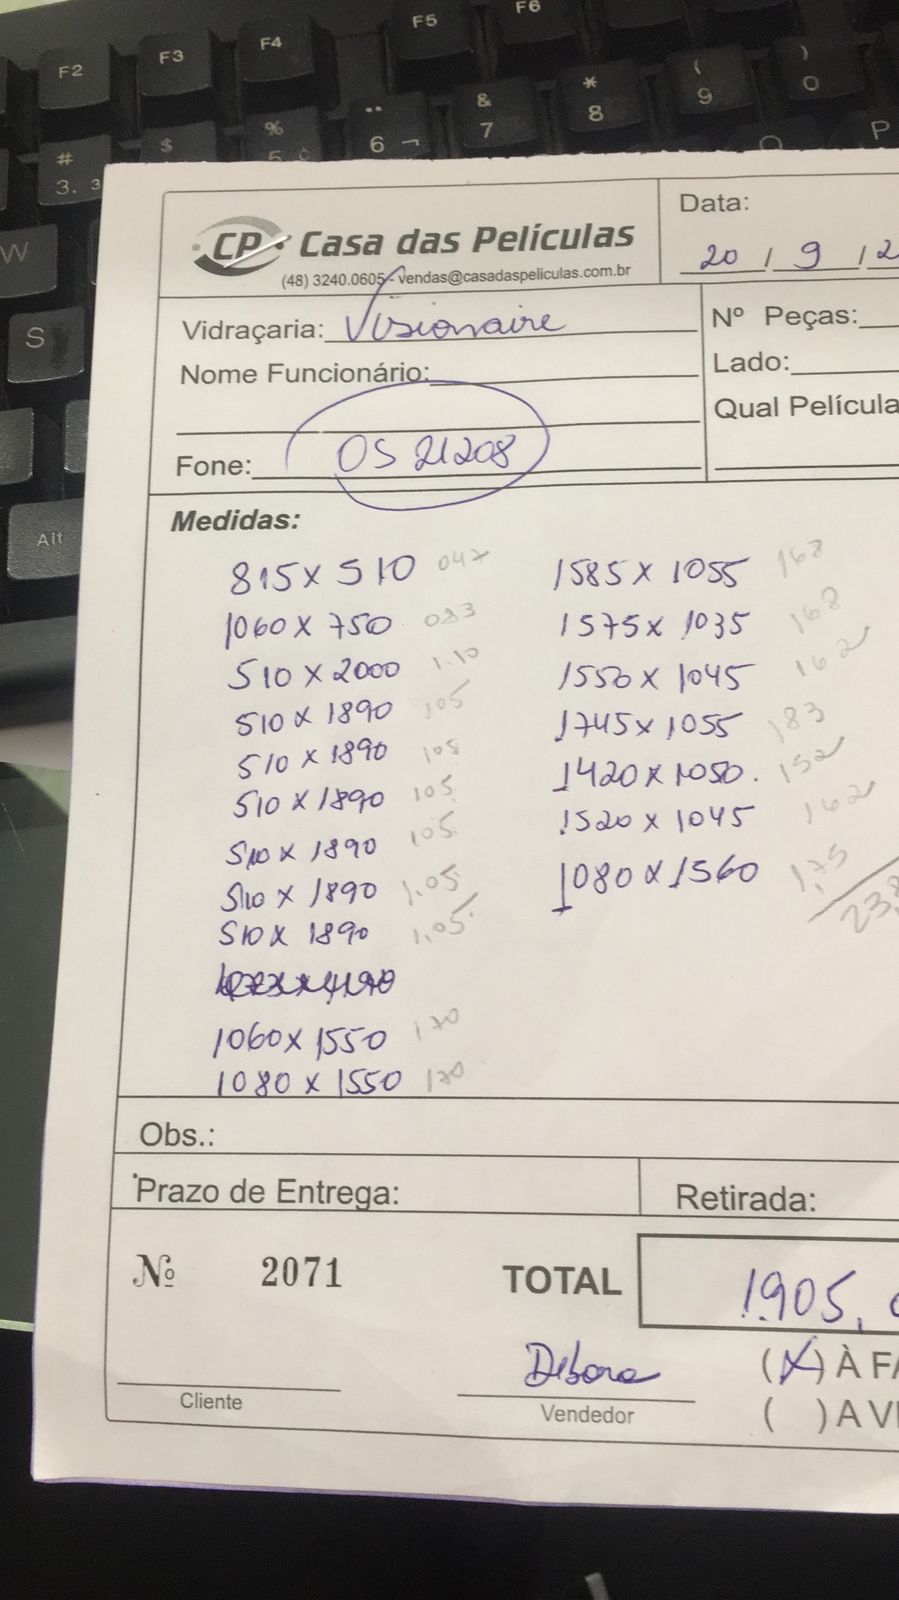 F2 F3 F4 F5 F6
# 3 $ % 5 ¢ ¨ 6 ¬ & 7 * 8 ( 9 ) 0
W O P
S
Alt
CP Casa das Películas
(48) 3240.0605 - vendas@casadaspeliculas.com.br
Data:
20 / 9 / 2
Vidraçaria: Visionaire
Nº Peças:
Nome Funcionário:
Lado:
Qual Película
Fone: OS 21208
Medidas:
815 x 510 047
1060 x 750 083
510 x 2000 1.10
510 x 1890 105
510 x 1890 105
510 x 1890 105
510 x 1890 105
510 x 1890 1,05
510 x 1890 1,05
1060 x 1550 170
1080 x 1550 170
1585 x 1055 168
1575 x 1035 168
1550 x 1045 162
1745 x 1055 183
1420 x 1050 152
1520 x 1045 162
1080 x 1560 1,75
23,8
Obs.:
Prazo de Entrega:
Retirada:
Nº 2071
TOTAL 1.905,
Debora
(X) À FA
Cliente
Vendedor
( ) A VI